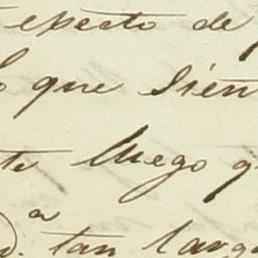 efecto de
que sien
te luego q
a
d. tan larg